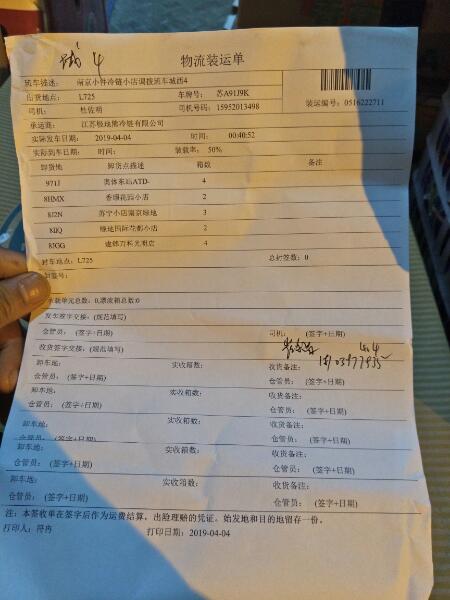 城4
物流装运单
班车描述：南京小件冷链小店调拨班车城西4
出货地点：L725 车牌号：苏A91J9K
司机：杜佐明 司机号码：15952013498 装运编号：0516222711
承运商：江苏极地熊冷链有限公司
实际发车日期：2019-04-04 时间：00:40:52
实际到车日期： 时间： 装载率：50%
卸货地 卸货点描述 箱数 备注
971J 奥体东站ATD- 4
8HMX 香缇花园小店 2
8J2N 苏宁小店南京绿地 3
8JJQ 绿地国际花都小店 2
8JGG 建邺万科光明店 4
封车地点：L725 总封签数：0
封签号：
承载单元总数：0,漂流箱总数:0
发车签字交接：(规范填写)
仓管员： (签字+日期) 司机： (签字+日期)
收货签字交接：(规范填写)
卸车地： 实收箱数： 收货备注：
仓管员： (签字+日期) 仓管员： (签字+日期)
卸车地： 实收箱数： 收货备注：
仓管员： (签字+日期) 仓管员： (签字+日期)
卸车地： 实收箱数： 收货备注：
仓管员： (签字+日期) 仓管员： (签字+日期)
卸车地： 实收箱数： 收货备注：
仓管员： (签字+日期) 仓管员： (签字+日期)
卸车地： 实收箱数： 收货备注：
仓管员： (签字+日期) 仓管员： (签字+日期)
注：本签收单在签字后作为运费结算，出险理赔的凭证，始发地和目的地留存一份。
打印人：符冉 打印日期：2019-04-04